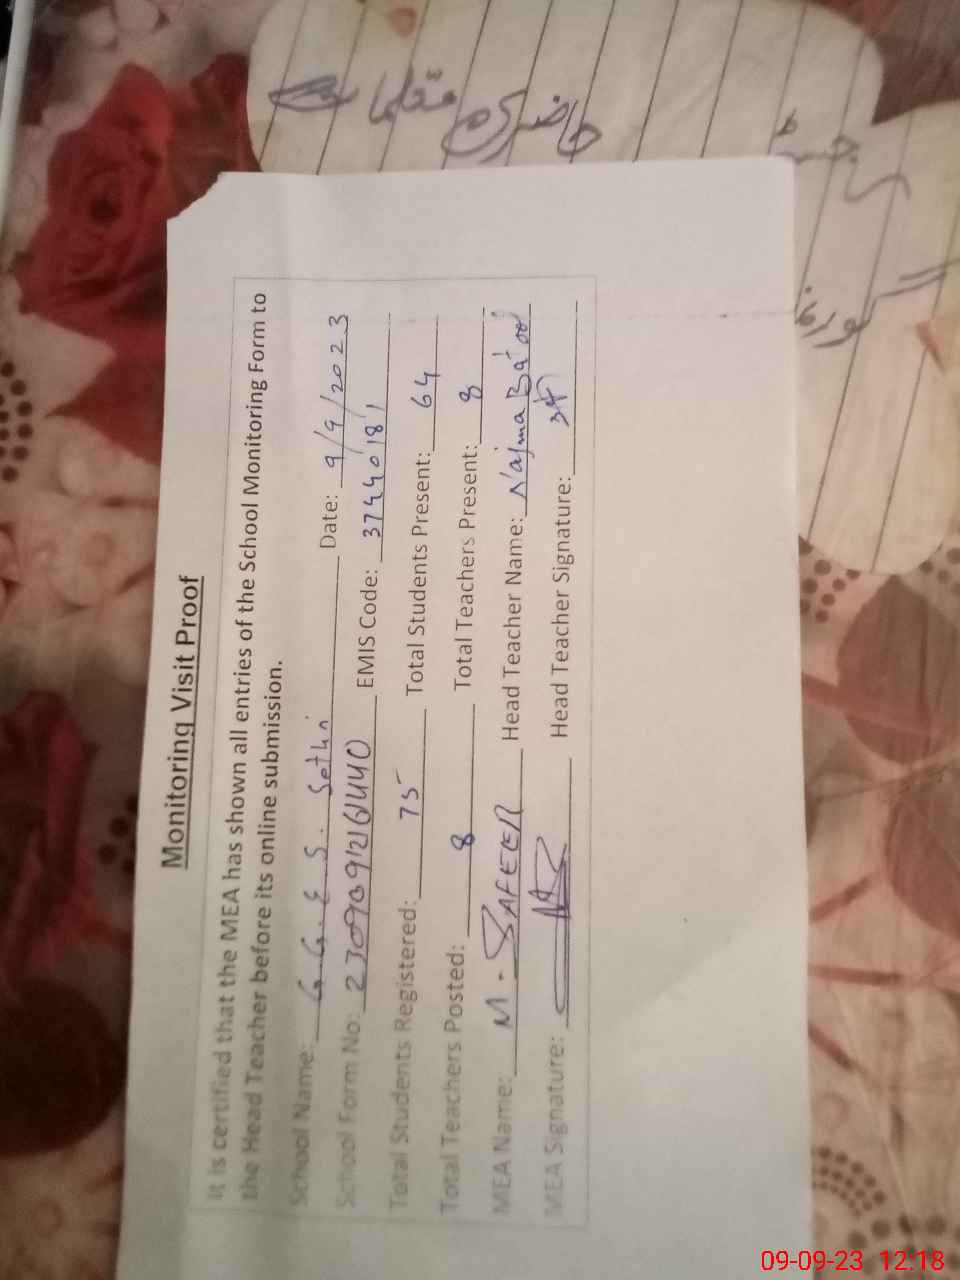 Monitoring Visit Proof
It is certified that the MEA has shown all entries of the School Monitoring Form to
the Head Teacher before its online submission.
School Name: G. G. E. S. Sethi Date: 9/9/2023
School Form No: EMIS Code: 37440181
Total Students Registered: 75 Total Students Present: 64
Total Teachers Posted: 8 Total Teachers Present: 8
MEA Name: M. SAFEER Head Teacher Name: Najma Batool
MEA Signature: Head Teacher Signature:
09-09-23 12:18